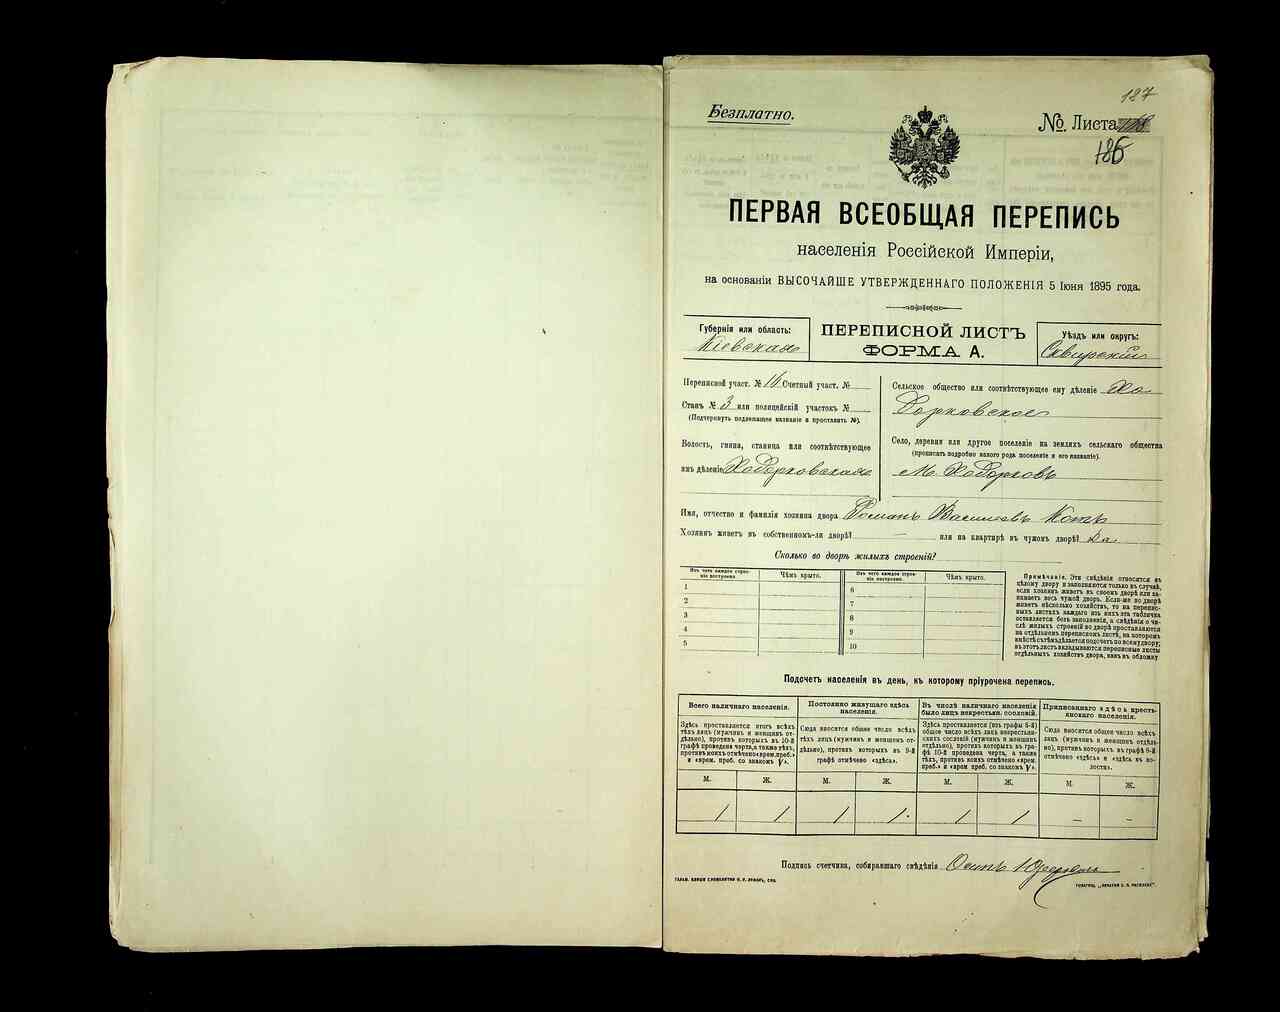 187
Безплатно.
№ Листа
186
ПЕРВАЯ ВСЕОБЩАЯ ПЕРЕПИСЬ
населенія Россійской Имперіи,
на основаніи ВЫСОЧАЙШЕ УТВЕРЖДЕННАГО ПОЛОЖЕНІЯ 5 Іюня 1895 года.
Губернія или область:
Кіевская
ПЕРЕПИСНОЙ ЛИСТЪ
ФОРМА А.
Уѣздъ или округъ:
Сквирскій
Переписной участ. № 16 Счетный участ. №
Станъ № 3 или полицейскій участокъ №
(Подчеркнуть подлежащее названіе и проставить №).
Волость, гмина, станица или соотвѣтствующее
имъ дѣленіе Ходорковская
Сельское общество или соотвѣтствующее ему дѣленіе Хо
дорковское
Село, деревня или другое поселеніе на земляхъ сельскаго общества
(прописать подробно какого рода поселеніе и его названіе).
м. Ходорковъ
Имя, отчество и фамилія хозяина двора Романъ Василіевъ Котъ
Хозяинъ живетъ въ собственномъ-ли дворѣ? — или на квартирѣ въ чужомъ дворѣ? Да
Сколько во дворѣ жилыхъ строеній?
Изъ чего каждое строеніе построено. Чѣмъ крыто. Изъ чего каждое строеніе построено. Чѣмъ крыто.
1 6
2 7
3 8
4 9
5 10
Примѣчаніе. Эти свѣдѣнія относятся къ
цѣлому двору и заполняются только въ случаѣ,
если хозяинъ живетъ въ своемъ дворѣ или за-
нимаетъ весь чужой дворъ. Если-же во дворѣ
живетъ нѣсколько хозяйствъ, то на перепис-
ныхъ листахъ каждаго изъ нихъ эта табличка
оставляется безъ заполненія, а свѣдѣнія о чи-
слѣ жилыхъ строеній во дворѣ проставляются
на отдѣльномъ переписномъ листѣ, на которомъ
вмѣстѣ съ тѣмъ дѣлается подсчетъ по всему двору;
въ этотъ листъ вкладываются переписные листы
отдѣльныхъ хозяйствъ двора, какъ въ обложку
Подсчетъ населенія въ день, къ которому пріурочена перепись.
Всего наличнаго населенія.
Здѣсь проставляется итогъ всѣхъ
тѣхъ лицъ (мужчинъ и женщинъ от-
дѣльно), противъ которыхъ въ 10-й
графѣ проведена черта, а также тѣхъ,
противъ коихъ отмѣчено «врем. преб.»
и «врем. преб. со знакомъ V».
Постоянно живущаго здѣсь
населенія.
Сюда вносится общее число всѣхъ
тѣхъ лицъ (мужчинъ и женщинъ от-
дѣльно), противъ которыхъ въ 9-й
графѣ отмѣчено «здѣсь».
Въ числѣ наличнаго населенія
было лицъ некрестьян. сословій.
Здѣсь проставляется (изъ графы 5-й)
общее число всѣхъ лицъ некрестьян-
скихъ сословій (мужчинъ и женщинъ
отдѣльно), противъ которыхъ въ гра-
фѣ 10-й проведена черта, а также
тѣхъ, противъ коихъ отмѣчено «врем.
преб.» и «врем. преб. со знакомъ V».
Приписаннаго здѣсь кресть-
янскаго населенія.
Сюда вносится общее число всѣхъ
лицъ (мужчинъ и женщинъ отдѣль-
но), противъ которыхъ въ графѣ 8-й
отмѣчено «здѣсь» и «здѣсь въ во-
лости».
М. Ж. М. Ж. М. Ж. М. Ж.
1 1 1 1 1 1 — —
Подпись счетчика, собиравшаго свѣдѣнія Осипъ